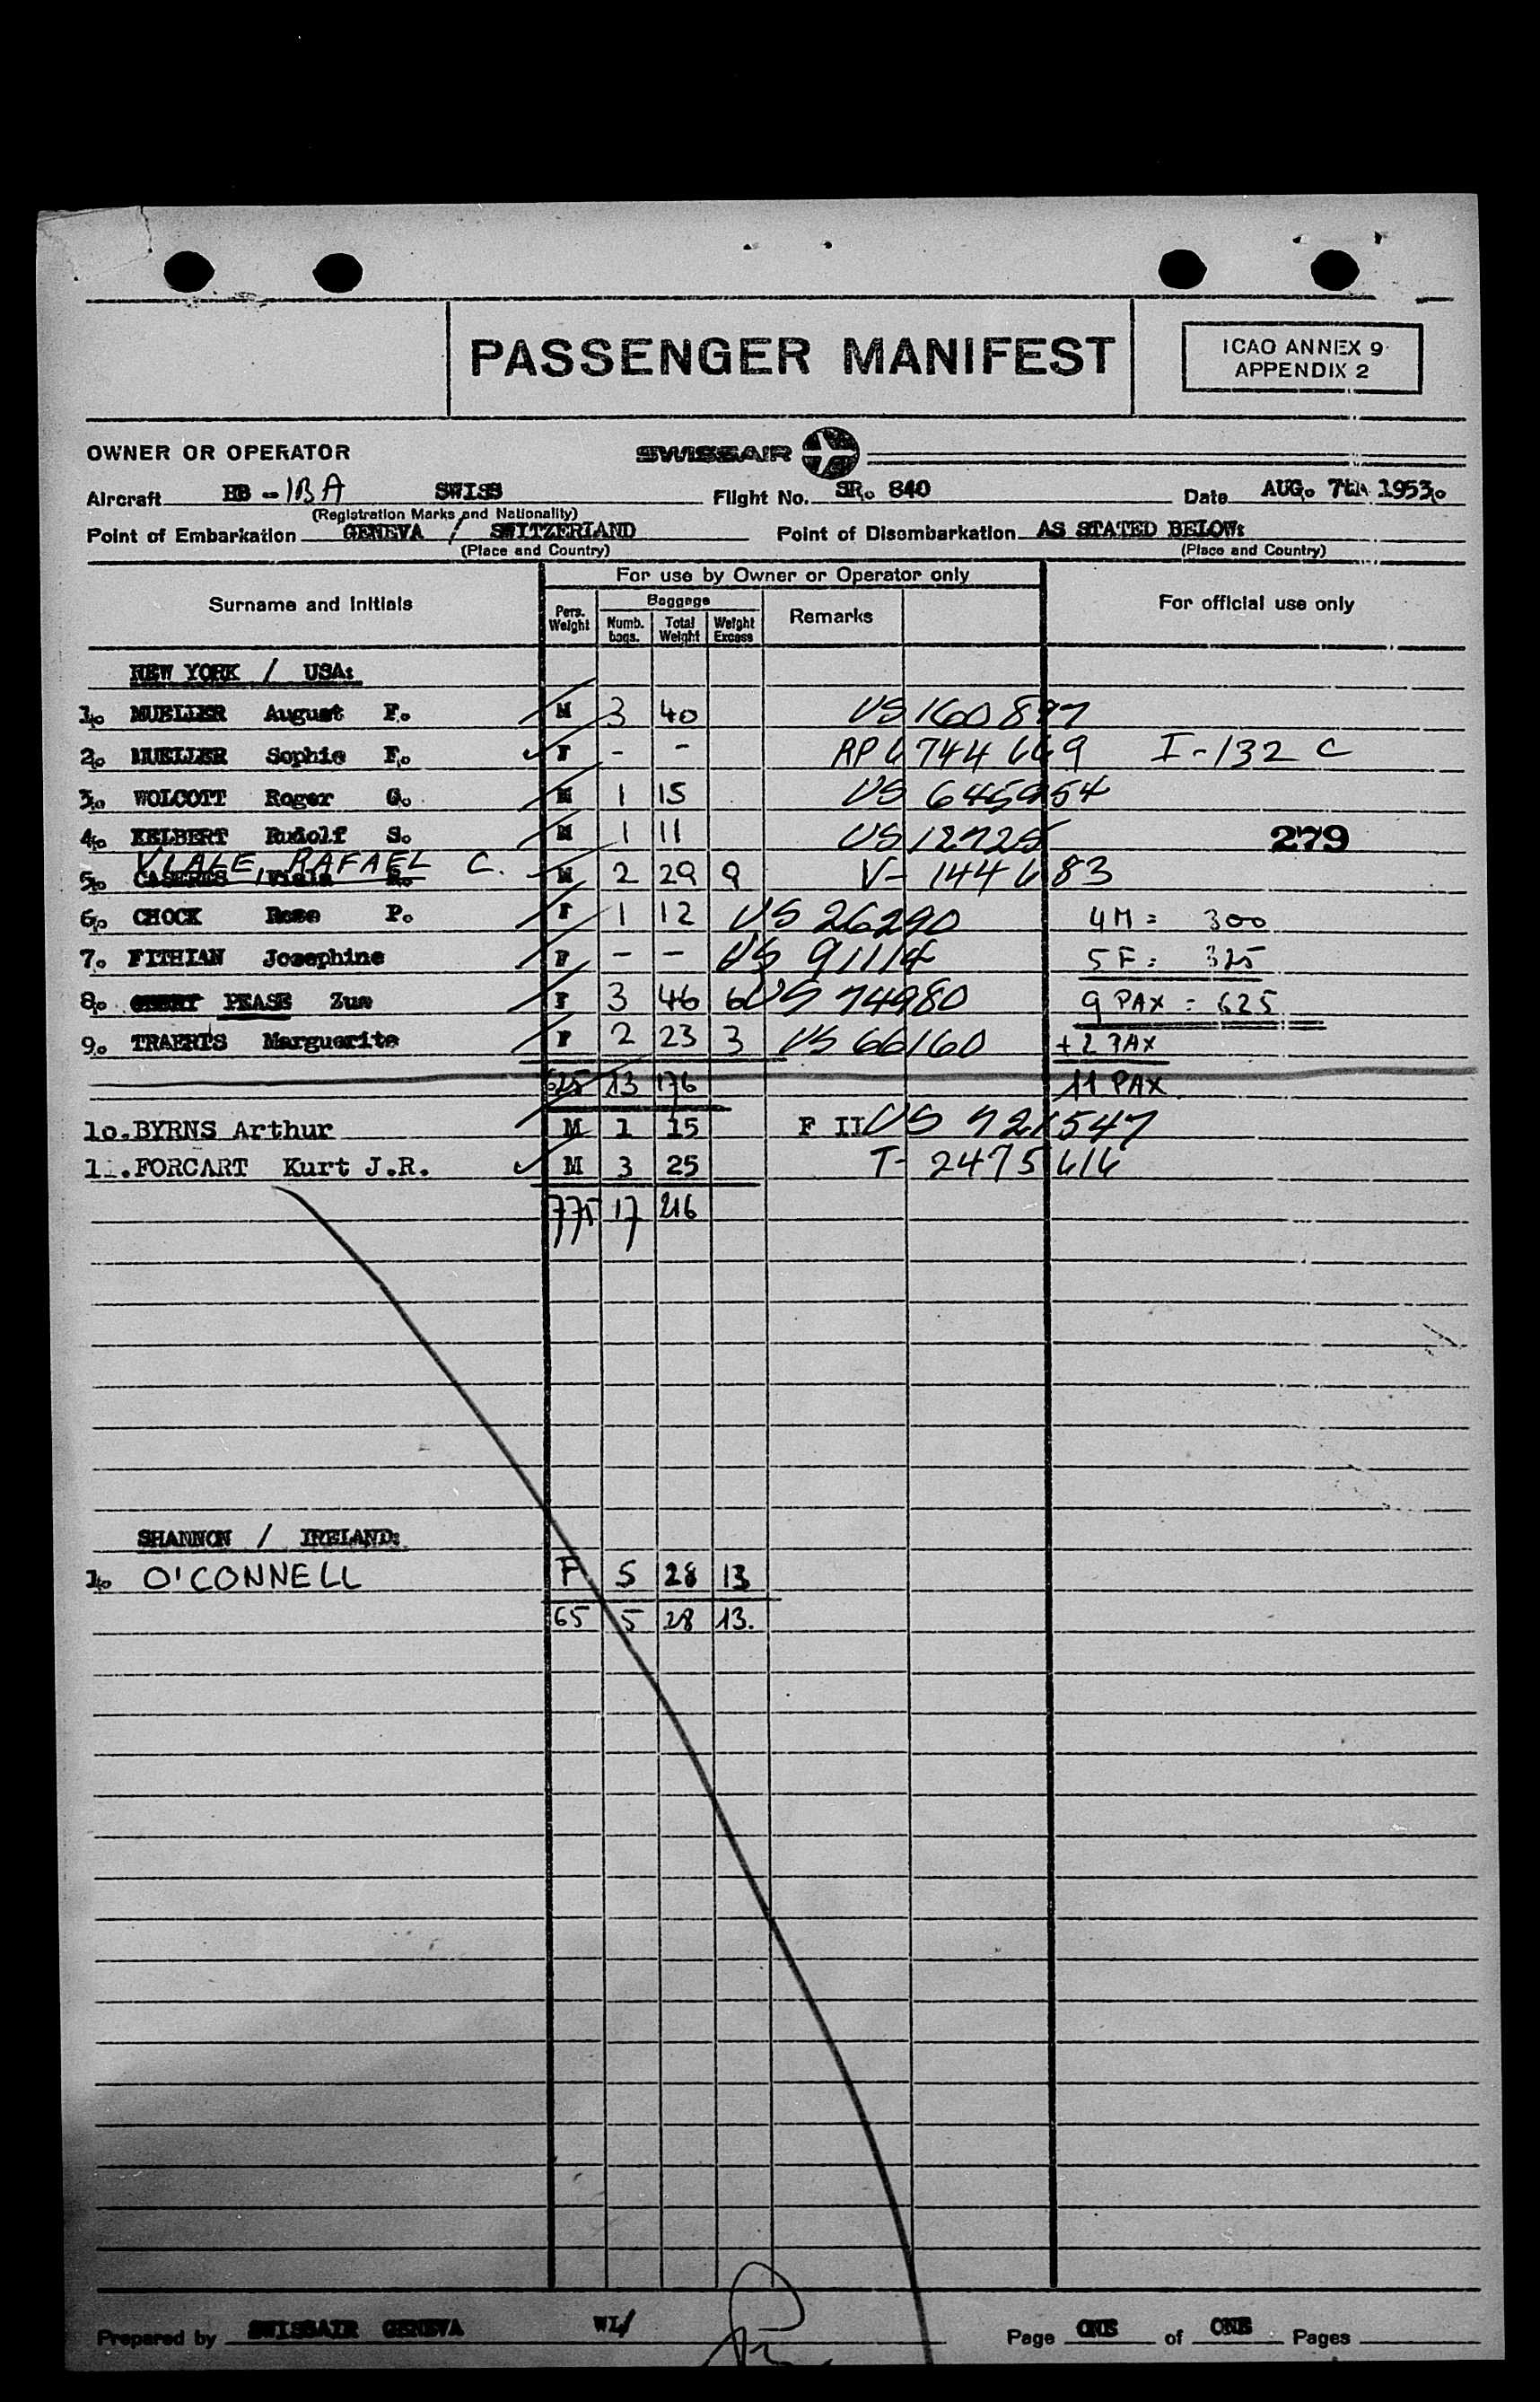 PASSENGER MANIFEST
ICAO ANNEX 9
APPENDIX 2
OWNER OR OPERATOR SWISSAIR
Aircraft HB - IBA SWISS Flight No. SR. 840 Date AUG. 7th 1953.
(Registration Marks and Nationality)
Point of Embarkation GENEVA / SWITZERLAND Point of Disembarkation AS STATED BELOW:
(Place and Country) (Place and Country)
For use by Owner or Operator only
Surname and Initials Pers. Weight Baggage Numb. bags. Total Weight Weight Excess Remarks For official use only
NEW YORK / USA:
1. MUELLER August F. M 3 40 US 160897
2. MUELLER Sophie F. F - - RP 6744669 I-132 C
3. WOLCOTT Roger G. M 1 15 US 645954
4. KELBERT Rudolf S. M 1 11 US 12725 279
VIALE, RAFAEL C.
5. M 2 29 9 V- 144683
6. CHOCK Rose P. F 1 12 US 26290 4M = 300
7. FITHIAN Josephine F - - US 91114 5F = 325
8. PEASE Zua F 3 46 6 US 74980 9 PAX = 625
9. TRAERTS Marguerite F 2 23 3 US 66160 + 2 PAX
625 13 176 11 PAX
10. BYRNS Arthur M 1 15 F II US 721547
11. FORCART Kurt J.R. M 3 25 T- 2475616
775 17 216
SHANNON / IRELAND:
1. O'CONNELL F 5 28 13
65 5 28 13.
Prepared by SWISSAIR GENEVA WL/ Page ONE of ONE Pages